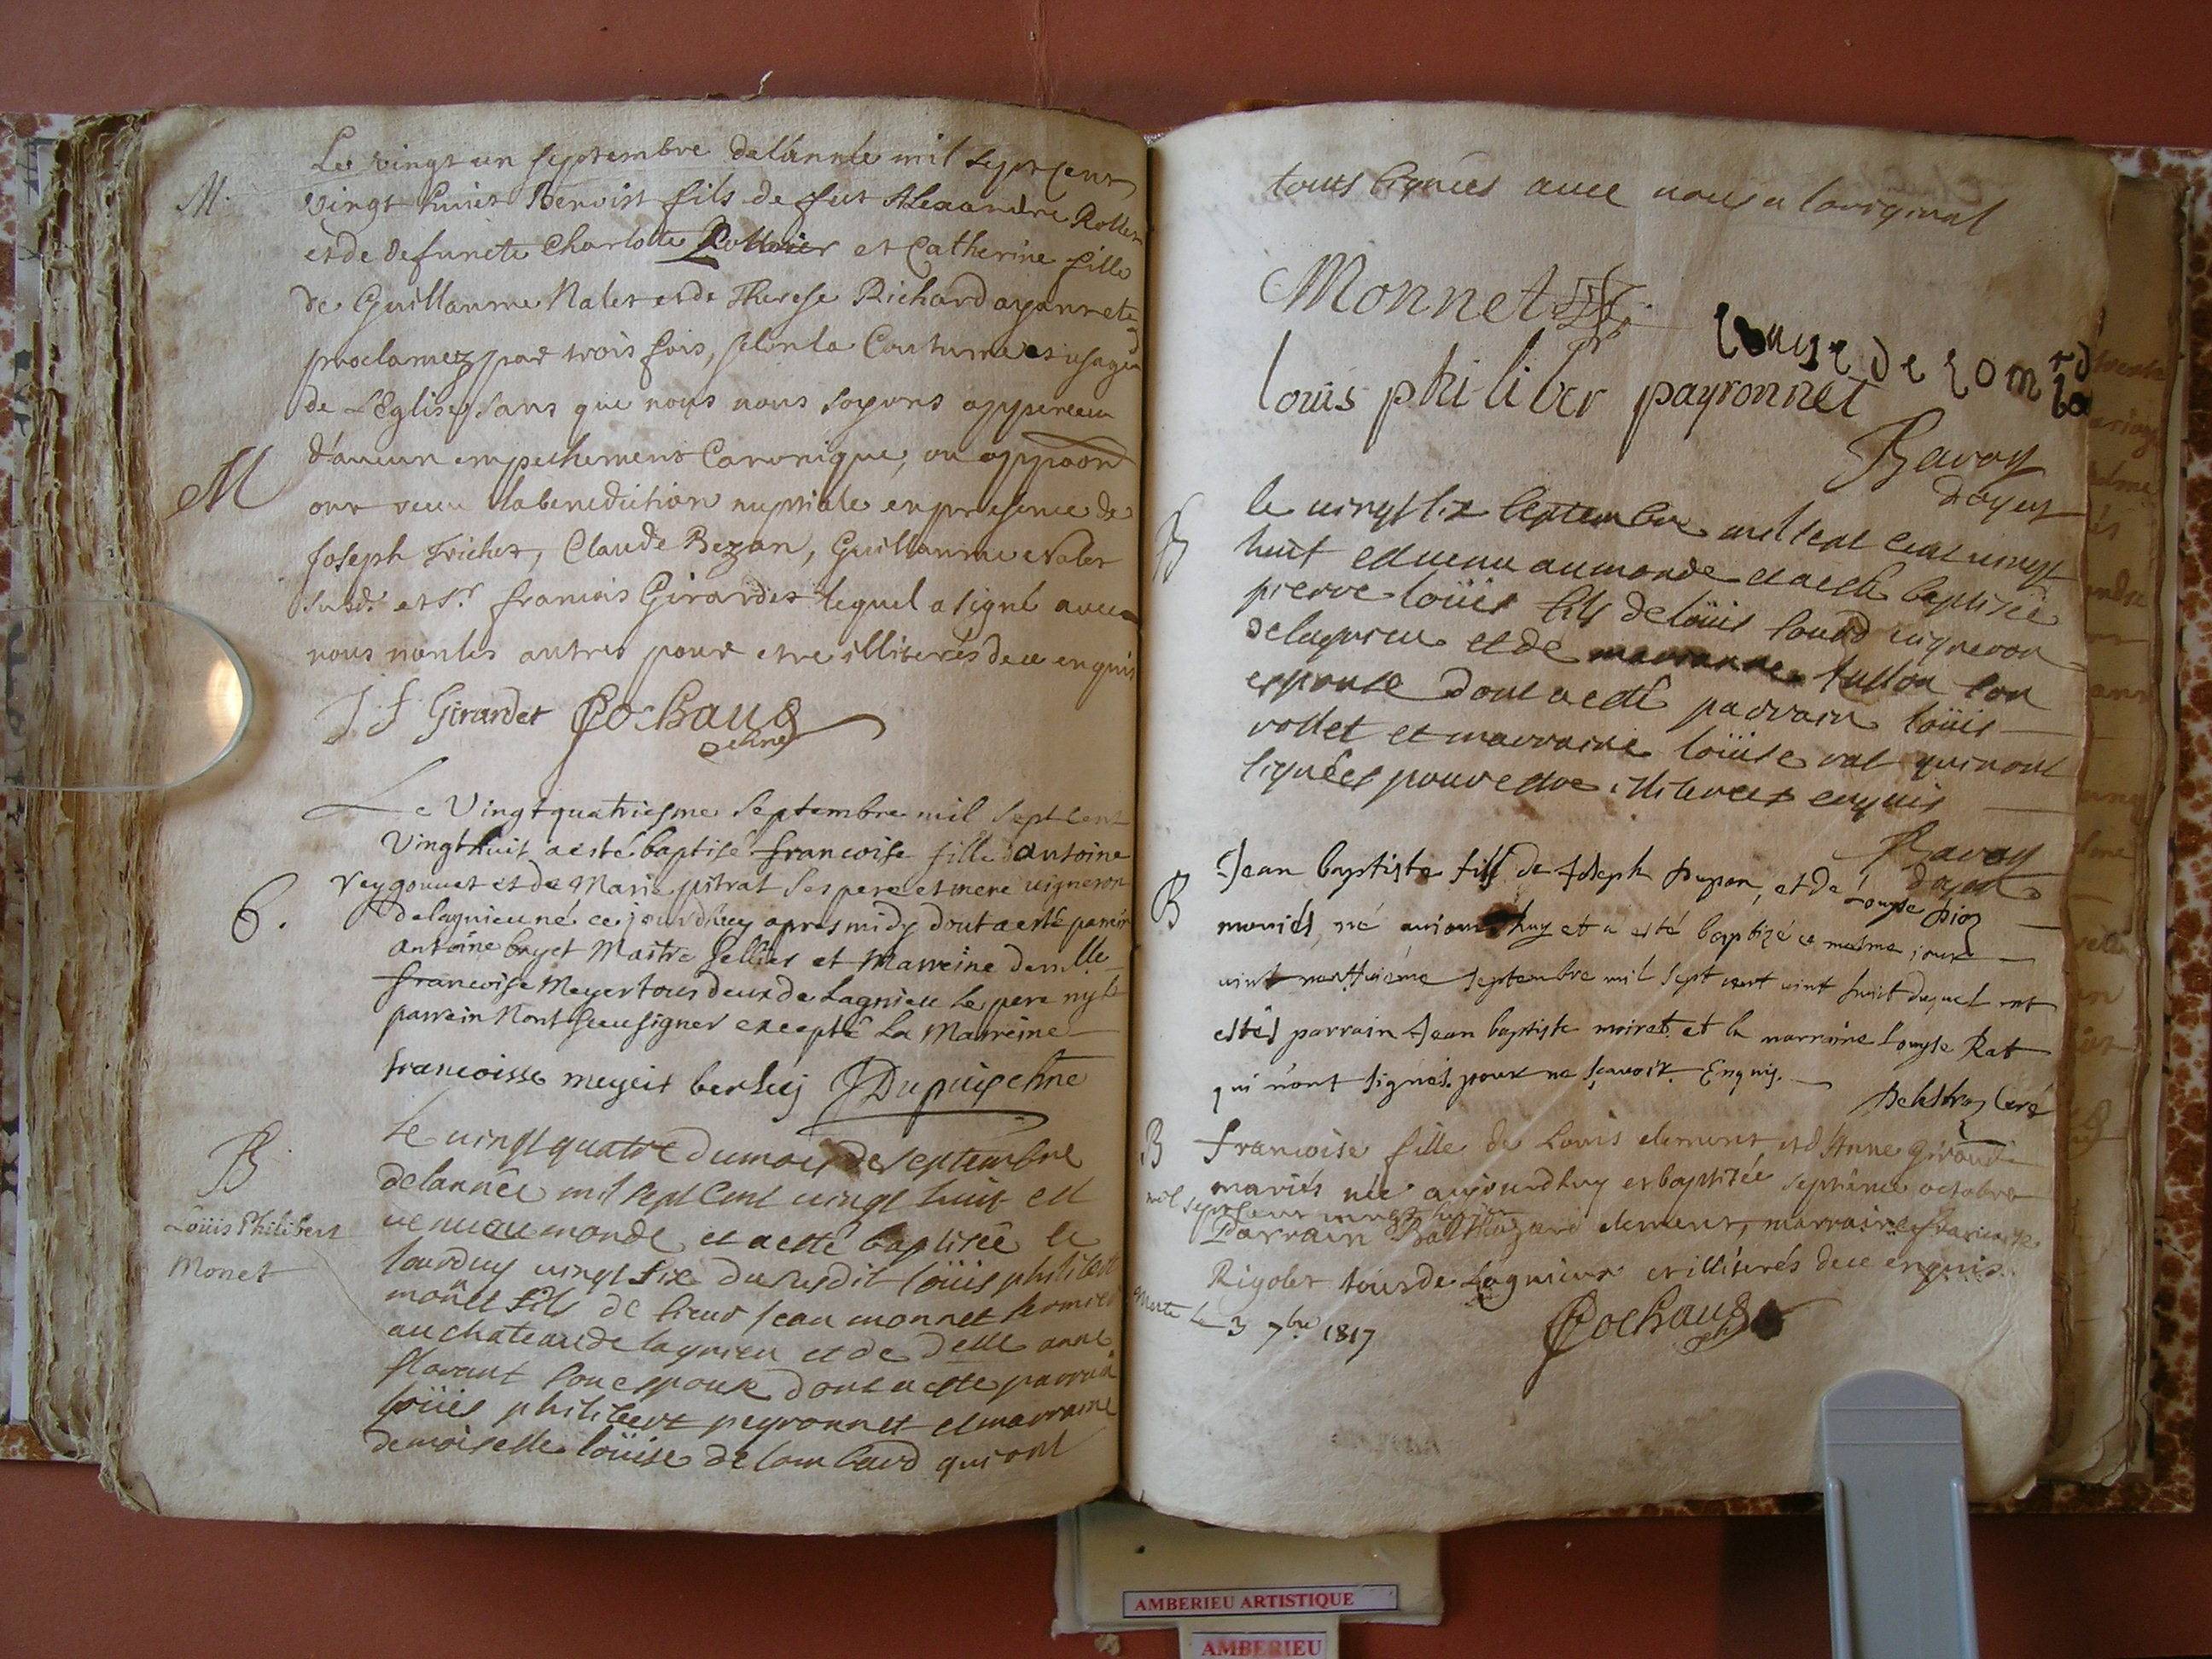 M.
Le vingt un septembre delannée mil sept cent
vingt huict Benoist fils de feu Alexandre Rollet
et de defuncte Charlotte et Catherine fille
de Guillaume Nalet et de Therese Richard ayant eté
proclamez par trois fois, selon la Coutume et usage
de L'Eglise, sans que nous nous soyons apperceu
M
d'aucun empechement Canonique, ou
ont receu la benediction nuptiale en presence de
Joseph Trichet, Claude Bezan, Guillaume Nalet
susd.t et S.r francois Girardet lequel a signé avec
nous non les autres pour etre illiterés de ce enquis
J f Girardet Cochaud
chne
Le Vingt quatriesme Septembre mil Sept Cent
Vingt huit a esté baptisé francoise fille d antoine
veygonnet et de Marie pitrat Ses pere et mere vigneron
6.
delagnieu né ce jourdhuy apres midy dont a esté parein
antoine buget Maitre Sellier et Marreine demlle
francoise Meyer tous deux de Lagnieu le pere ny le
parrein Nont sceu signer excepté La Marreine
francoisse meyeit J Dupuis chne
B
Le vingt quatre du mois de septembre
delannée mil sept cent vingt huit est
Loüis Philibert
venu au monde et a esté baptisée le
Monet
vingt six du susdit loüis philibert
monet fils de sieur jean monnet fermier
au chateau de lagnieu et de delle anne
florant son espouse dont a este parrain
loüis philibert peyronnet et marraine
demoiselle loüise de lombard qui ont
touts signés avec nous a loriginal
Monnet
louise de lombard
louis philiber payronnet
Ravoy
doyen
B
le vingt six septembre mil sept cent vingt
huit est venu au monde et a esté baptisée
pierre loüis fils de loüis vigneron
delagnieu et de marianne son
espouse dont a esté parrain loüis
vollet et marraine loüise rat qui nont
signées pour estre illiterees enquis
Ravoy
doyen
B
Jean baptiste fils de Joseph dupon, et de Louyse
mariés, né aujourdhuy et a esté baptizé ce mesme jour
vint septembre mil sept cent vint huict duquel ont
estés parrain Jean baptiste moiret et la marraine Louyse Rat
qui n'ont signés pour ne sçavoir. Enquis.
curé
B
francoise fille de Louis clement et d'Anne Giroudi
mariés née aujourdhuy et baptisée septieme octobre
mil sept cent vingt huict
Parrain Balthazard clement, marraine francoise
Rigolet tous de Lagnieux et illiterés de ce enquis.
morte le 3 7.bre 1817
Cochaud
ch
AMBERIEU ARTISTIQUE
AMBERIEU